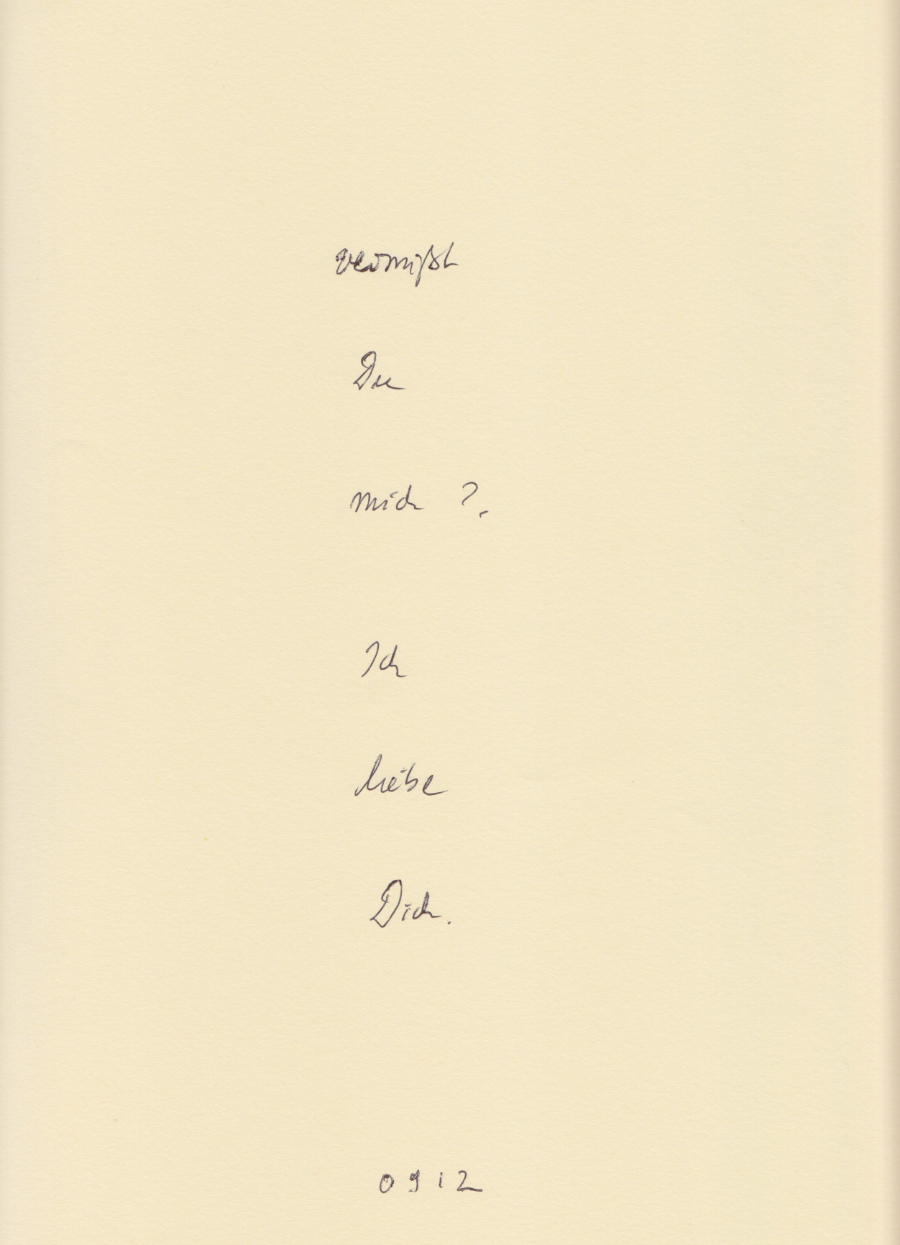 vermißt
Du
mich ?
Ich
liebe
Dich.
0912